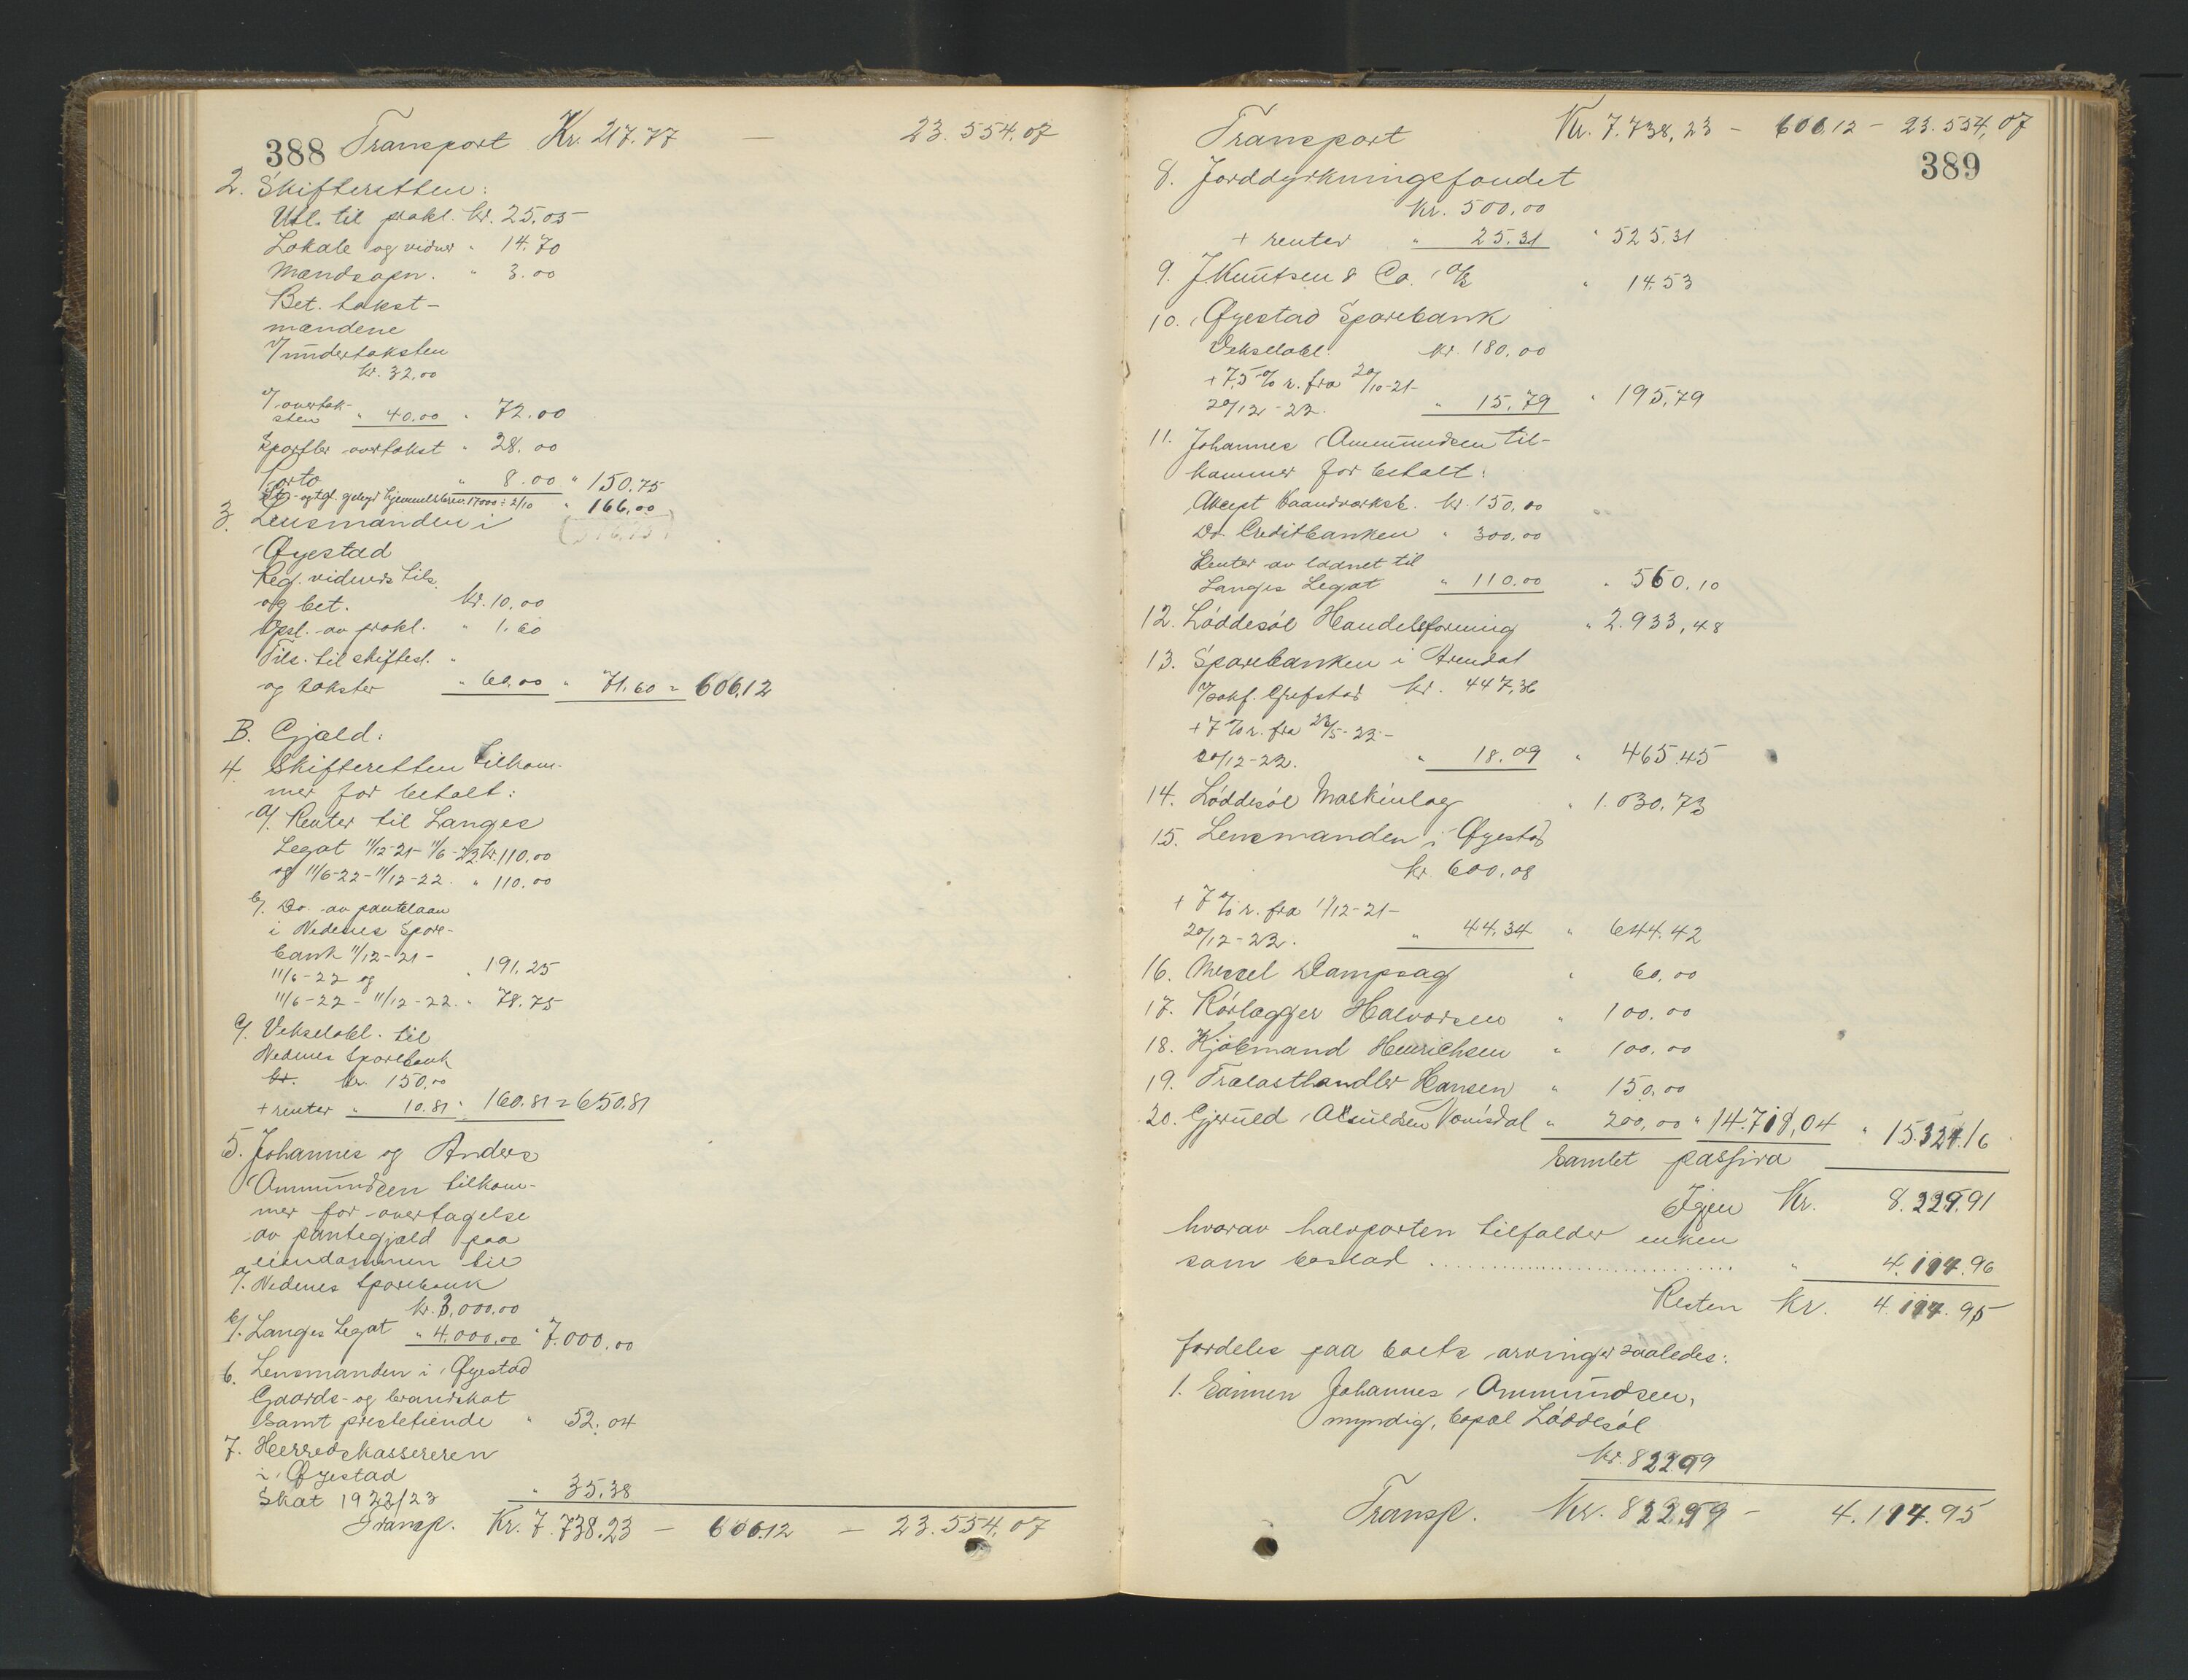 388 Transport Kr. 217.77 — 23.554.07
2. Skifteretten:
Utl. til prokl. kr. 25.05
Lokale og vidner " 14.70
Mandsopn. " 3.00
Bet. takst-
mændene
v/undertaksten
kr. 32.00
v/overtak-
sten " 40.00 " 72.00
Sportler overtakst " 28.00
Porto " 8.00 " 150.75
og tgl. gebyr hjemmelsbrev 17000 ÷ 2/10 " 166,00
3. Lensmanden i
Øyestad
Reg. vidners tils.
og bet. kr. 10.00
Opsl. av prokl. " 1.60
Tils. til skiftesl. "
og takster " 60.00 " 71.60 = 606,12
B. Gjæld:
4. Skifteretten tilkom-
mer for betalt:
a/. Renter til Langes
Legat 11/12-21- 11/6-22 kr. 110.00
og 11/6-22-11/12-22. " 110.00
b/. Do. av pantelaan
i Nedenes Spare-
bank 11/12-21-
11/6-22 og " 191.25
11/6-22 - 11/12-22. " 78.75
c/. Vekselobl. til
Nedenes Sparebank
kr. kr. 150,00
+ renter " 10.81 " 160.81 = 650.81
5. Johannes og Anders
Ommundsen tilkom-
mer for overtagelse
av pantegjæld paa
eiendommen til
a/. Nedenes Sparebank
kr. 3,000.00
b/. Langes Legat " 4.000,00 " 7.000,00
6. Lensmanden i Øyestad
Gaards- og brandskat
samt prestetiende " 52.04
7. Herredskassereren
i Øyestad
Skat 1922/23 " 35.38
Transp. Kr. 7.738.23 — 606.12 — 23.554,07
Transport Kr. 7.738,23 — 606.12 — 23.554,07
389
8. Jorddyrkningsfondet
kr. 500.00
+ renter " 25.31 " 525.31
9. J. Knutsen & Co. " 14.53
10. Øyestad Sparebank
Vekselobl. kr. 180.00
+ 7,5 % r. fra 20/10-21-
20/12-22. " 15.79 " 195,79
11. Johannes Ommundsen til-
kommer for betalt:
Aksept Haandverksb. kr. 150,00
Do. Creditbanken " 300,00
Renter av laanet til
Langes Legat " 110.00 " 560.10
12. Løddesøl Handelsforening " 2.933,48
13. Sparebanken i Arendal
v/sakf. Grefstad kr. 447,36
+ 7 % r. fra 23/5-22-
20/12-22. " 18.09 " 465.45
14. Løddesøl Maskinlag " 1.030,73
15. Lensmanden i Øyestad
kr. 600.08
+ 7 % r. fra 1/12-21-
20/12-22. " 44.34 " 644.42
16. Messel Dampsag " 60,00
17. Rørlægger Halvorsen " 100.00
18. Kjøbmand Henrichsen " 100.00
19. Trælasthandler Hansen " 150,00
20. Gjeruld Vonisdal " 200,00 " 14.718,04 " 15.324.16
Samlet passiva
Igjen Kr. 8.229.91
hvorav halvparten tilfalder enken
som boslod .............................. " 4.114.96
Resten Kr. 4.114.95
fordeles paa boets arvinger saaledes:
1. Sønnen Johannes Ommundsen,
myndig, bopæl Løddesøl
kr. 822.99
Transp. Kr. 822.99 — 4.114.95